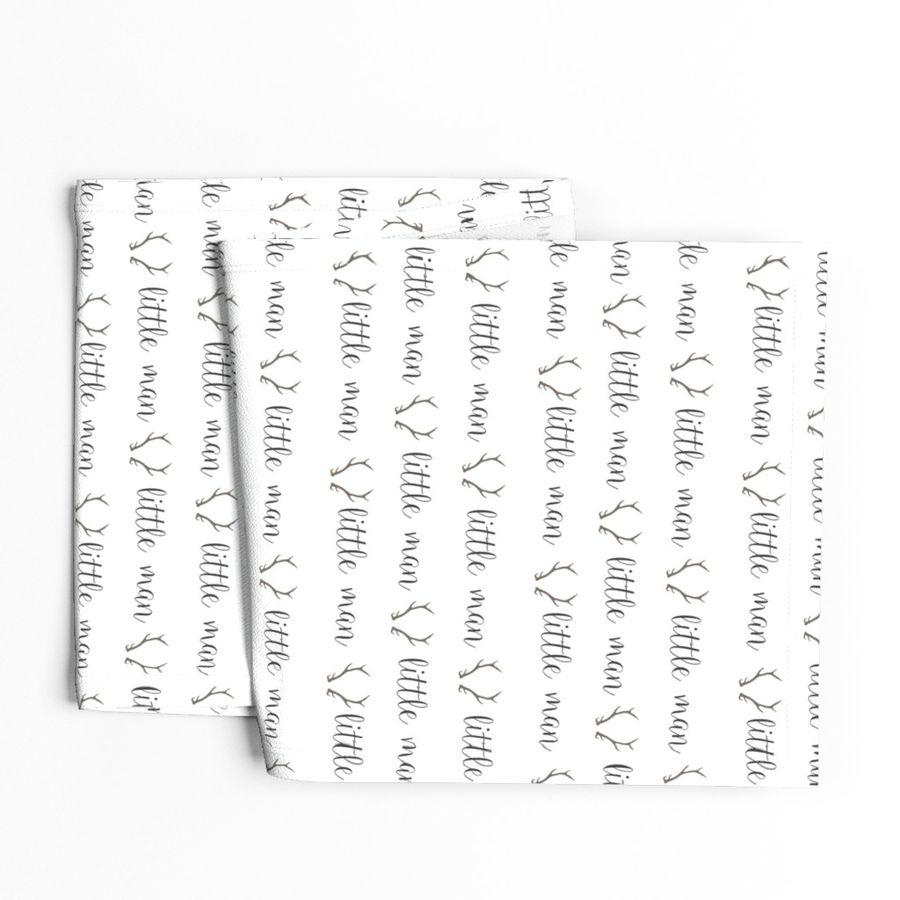 little man little man little man
little man little man little man
little man little man
little man little man little man
little man little man little
little man little man little man
little man little man little
man little man little man
little man little man
little man little man little man
little man little man little